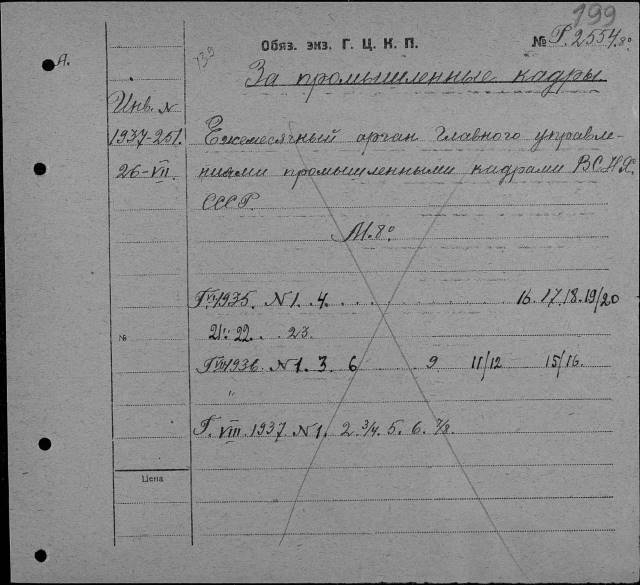 199
А.
139
Обяз. экз. Г. Ц. К. П.
№ Р. 2554. 8°
За промышленные кадры
Инв. №
1937-251.
26-VII.
Ежемесячный орган главного управле-
ниями промышленными кадрами ВСНХ.
СССР.
М. 8°
Г. VI 1935. N 1. 4. 16. 17. 18. 19/20
21. 22. 23.
№
Г. VII 1936. N 1. 3. 6 9 11/12 15/16.
"
Г. VIII. 1937. N 1. 2. 3/4. 5. 6. 7/8.
Цена